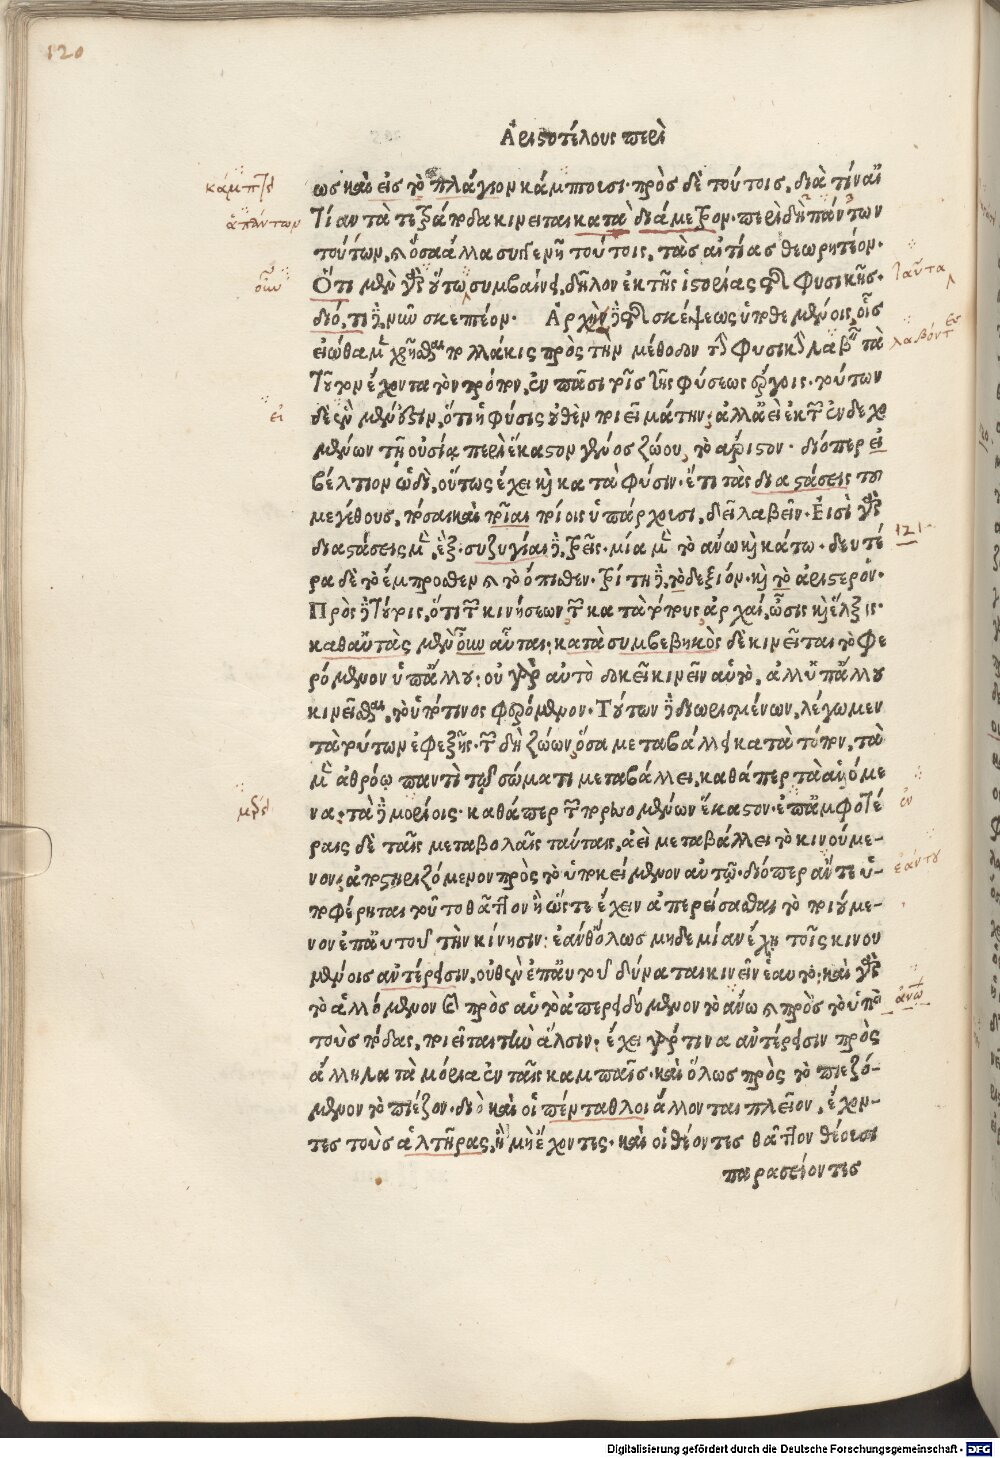 120
Ἀριστοτέλους περὶ
ως καὶ εἰς τὸ πλάγιον κάμπτουσι· πρὸς δὲ τούτοις, διὰ τίν αἰ
τίαν τὰ τετράποδα κινεῖται κατὰ διάμετρον· περὶ δὴ πάντων
τούτων, καὶ ὅσα ἄλλα συγγενῆ τούτοις, τὰς αἰτίας θεωρητέον·
Ὅτι μὲν γὰρ οὕτω συμβαίνει, δῆλον ἐκ τῆς ἱστορίας τῆς φυσικῆς·
διότι δὲ, νῦν σκεπτέον· Ἀρχὴ δὲ τῆς σκέψεως ὑποθεμένοις, οἷς
εἰώθαμεν χρῆσθαι πολλάκις πρὸς τὴν μέθοδον τὴν φυσικὴν λαβ τὰ
τοῦτον ἔχοντα τὸν τρόπον, ἐν πᾶσι τοῖς τῆς φύσεως ἔργοις· τούτων
δὲ ἓν μέν ἐστιν, ὅτι ἡ φύσις οὐθὲν ποιεῖ μάτην· ἀλλ' ἀεὶ ἐκ τῶν ἐνδεχ
μένων τῇ οὐσίᾳ περὶ ἕκαστον γένος ζώου, τὸ ἄριστον· διόπερ εἰ
βέλτιον ὡδὶ, οὕτως ἔχει καὶ κατὰ φύσιν· ἔτι τὰς διαστάσεις τοῦ
μεγέθους, πόσαι καὶ ποῖαι ποίοις ὑπάρχουσι, δεῖ λαβεῖν· Εἰσὶ γὰρ
διαστάσεις μὲν, ἓξ· συζυγίαι δὲ, τρεῖς· μία μὲν τὸ ἄνω καὶ κάτω· δευτέ
ρα δὲ τὸ ἔμπροσθεν καὶ τὸ ὄπισθεν· τρίτη δὲ, τὸ δεξιὸν· καὶ τὸ ἀριστερόν·
Πρὸς δὲ τούτοις, ὅτι τῶν κινήσεων τῶν κατὰ τόπους ἀρχαί, ὦσις καὶ ἕλξις·
καθ' αὑτὰς μὲν οὖν αὗται· κατὰ συμβεβηκὸς δὲ κινεῖται τὸ φε
ρόμενον ὑπ' ἄλλου· οὐ γὰρ αὐτὸ δοκεῖ κινεῖν αὑτὸ, ἀλλ' ὑπ' ἄλλου
κινεῖσθαι, τὸ ὑπό τινος φερόμενον· Τούτων δὲ διωρισμένων, λέγωμεν
τὰ τούτων ἐφεξῆς· τῶν δὴ ζώων, ὅσα μεταβάλλει κατὰ τόπον, τὰ
μὲν ἀθρόῳ παντὶ τῷ σώματι μεταβάλλει, καθάπερ τὰ ἁλόμε
να· τὰ δὲ μορίοις· καθάπερ τῶν πορευομένων ἕκαστον· ἐπ' ἀμφοτέ
ραις δὲ ταῖς μεταβολαῖς ταύταις, ἀεὶ μεταβάλλει τὸ κινούμε-
νον, ἀποστηριζόμενον πρὸς τὸ ὑποκείμενον αὐτῷ· διόπερ ἄντε ὑ-
ποφέρηται τοῦτο θᾶττον ἢ ὥστε ἔχειν ἀπερείσασθαι τὸ ποιούμε-
νον ἐπ' αὐτοῦ τὴν κίνησιν· ἐάνθ' ὅλως μηδεμίαν ἔχῃ τοῖς κινου
μένοις ἀντέρεισιν, οὐθὲν ἐπ' αὐτοῦ δύναται κινεῖν ἑαυτό· καὶ γὰρ
τὸ ἁλλόμενον καὶ πρὸς αὑτὸ ἀπερειδόμενον τὸ ἄνω καὶ πρὸς τὸ ὑπὸ
τοὺς πόδας, ποιεῖται τὴν ἅλσιν· ἔχει γάρ τινα ἀντέρεισιν πρὸς
ἄλληλα τὰ μόρια ἐν ταῖς καμπαῖς· καὶ ὅλως πρὸς τὸ πιεζό-
μενον τὸ πιέζον· διὸ καὶ οἱ πένταθλοι ἅλλονται πλεῖον, ἔχον-
τες τοὺς ἁλτῆρας, ἢ μὴ ἔχοντες· καὶ οἱ θέοντες θᾶττον θέουσι
παρασείοντες
κάμπτει
ἁπάντων
οὖν
εἰ
ταῦτα
λαβόντες
121
ἐν
ἐάντου
ἄνω
Digitalisierung gefördert durch die Deutsche Forschungsgemeinschaft - DFG